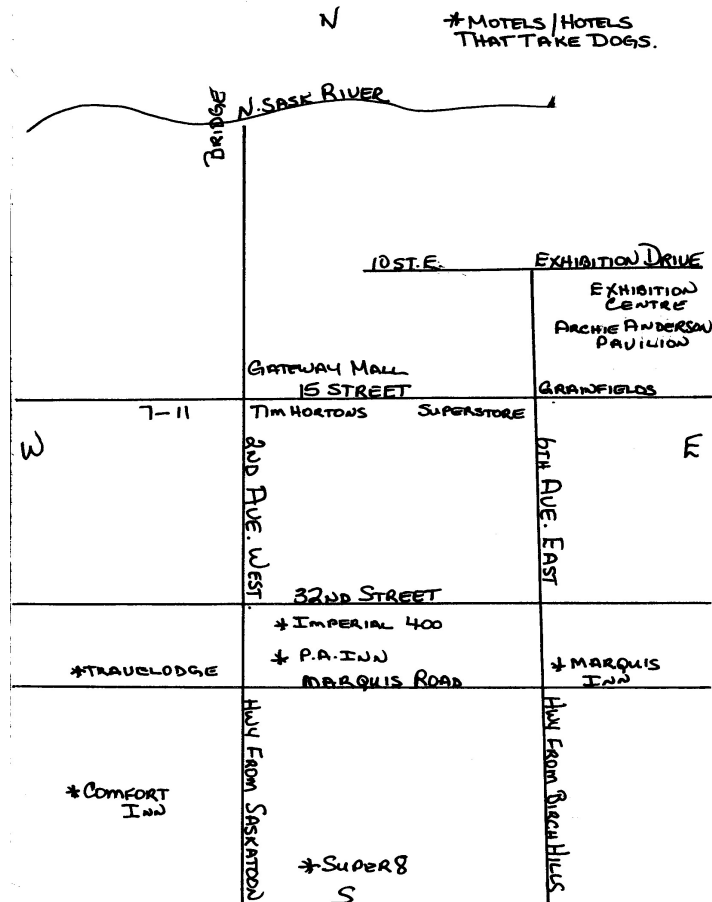 N
*MOTELS/HOTELS
THAT TAKE DOGS.
BRIDGE
N. SASK RIVER
10 ST. E.
EXHIBITION DRIVE
EXHIBITION
CENTRE
ARCHIE ANDERSON
PAVILION
GATEWAY MALL
15 STREET
GRAINFIELDS
7-11
TIM HORTONS
SUPERSTORE
W
E
2ND AVE. WEST.
6TH AVE. EAST
32ND STREET
*IMPERIAL 400
*TRAVELODGE
* P.A. INN
MARQUIS ROAD
*MARQUIS
INN
HWY FROM SASKATOON
HWY FROM BIRCH HILLS
*COMFORT
INN
*SUPER 8
S